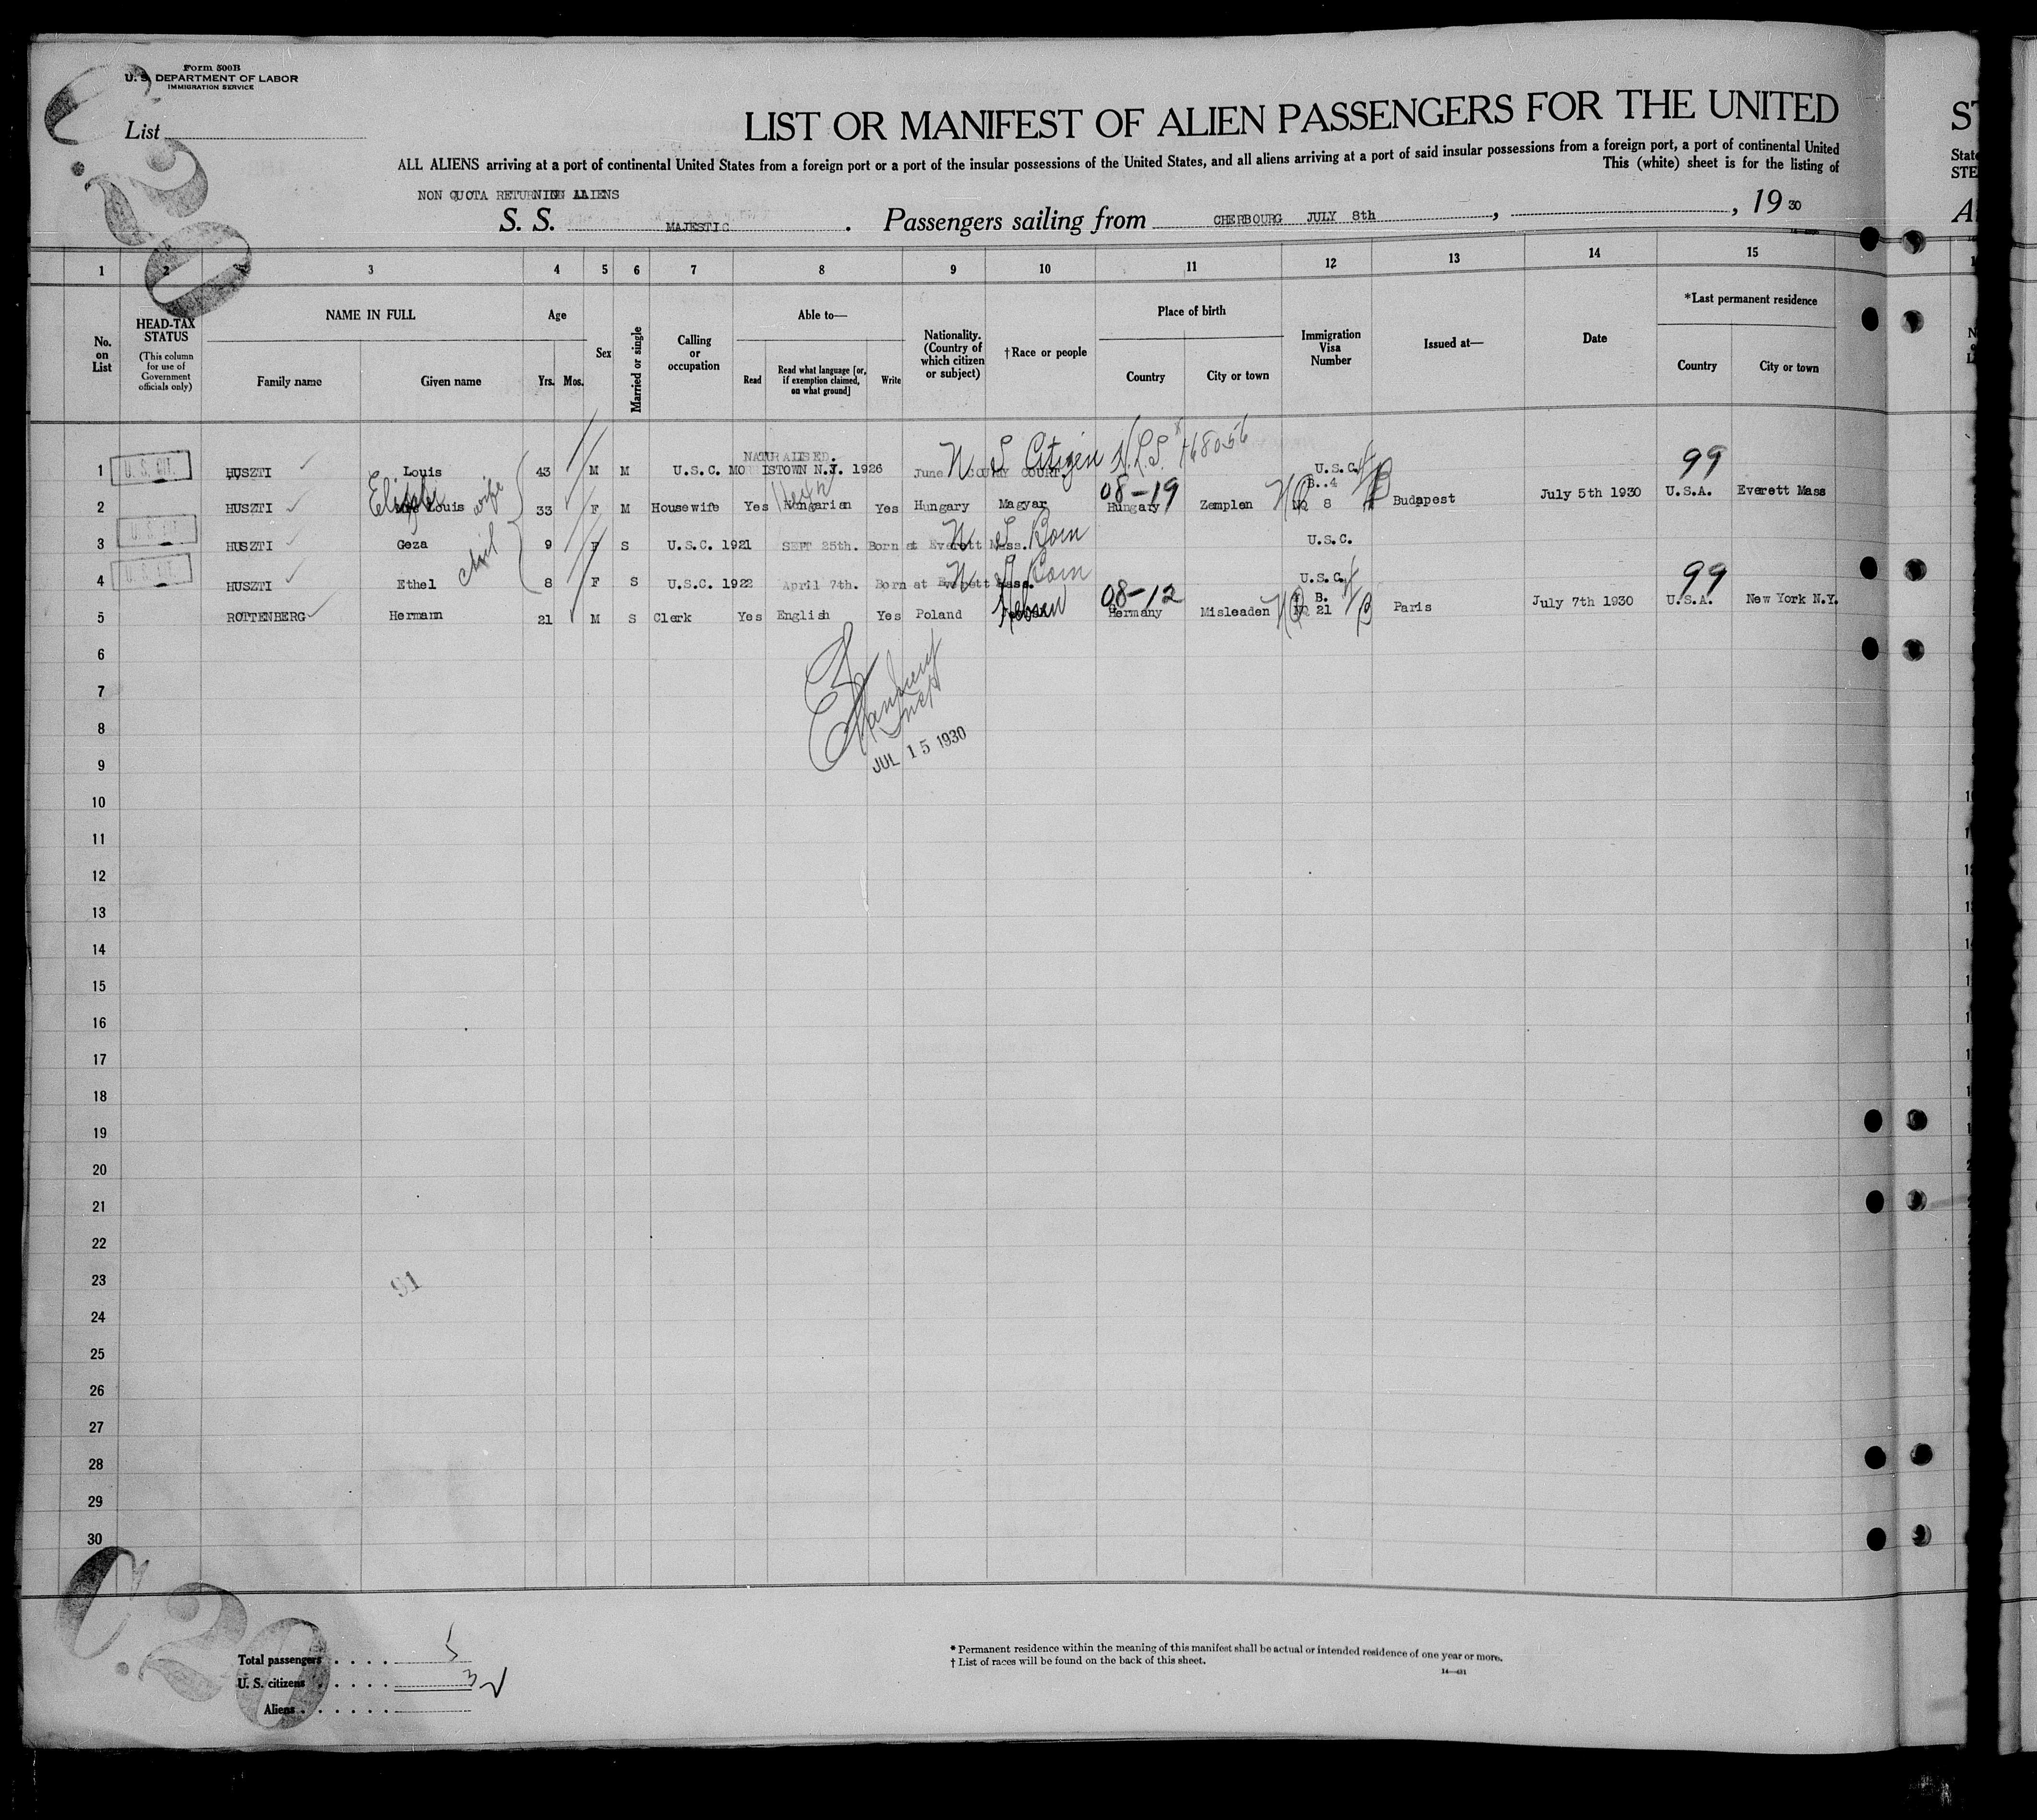 Form 500B
U. S. DEPARTMENT OF LABOR
IMMIGRATION SERVICE
C.20
List
LIST OR MANIFEST OF ALIEN PASSENGERS FOR THE UNITED
ST
ALL ALIENS arriving at a port of continental United States from a foreign port or a port of the insular possessions of the United States, and all aliens arriving at a port of said insular possessions from a foreign port, a port of continental United
State
This (white) sheet is for the listing of
STE
NON QUOTA RETURNING ALIENS
S. S. MAJESTIC . Passengers sailing from CHERBOURG JULY 8th , , 19 30
1 2 3 4 5 6 7 8 9 10 11 12 13 14 15
No. on List
HEAD-TAX STATUS
(This column for use of Government officials only)
NAME IN FULL
Family name Given name
Age
Yrs. Mos.
Sex
Married or single
Calling or occupation
Able to—
Read
Read what language [or, if exemption claimed, on what ground]
Write
Nationality. (Country of which citizen or subject)
†Race or people
Place of birth
Country City or town
Immigration Visa Number
Issued at—
Date
*Last permanent residence
Country City or town
NATURALISED.
1 U. S. CIT. HUSZTI Louis 43 M M U.S.C. MORRISTOWN N.J. 1926 June COUNTY COURT. N S Citizen 468056 U.S.C. 99
2 HUSZTI Louis wife 33 F M Housewife Yes Hungarian Yes Hungary Magyar 08-19 Hungary Zemplen NQ 8 Budapest July 5th 1930 U.S.A. Everett Mass
3 HUSZTI Geza 9 F S U.S.C. 1921 SEPT 25th. Born at Everett Mass. Born U.S.C.
4 HUSZTI Ethel child 8 F S U.S.C. 1922 April 7th. Born at Everett Mass. Born U.S.C. 99
5 ROTTENBERG Hermann 21 M S Clerk Yes English Yes Poland Hebrew 08-12 Hermany Misleaden NQ 21 Paris July 7th 1930 U.S.A. New York N.Y.
6
7
8
JUL 15 1930
9
10
11
12
13
14
15
16
17
18
19
20
21
22
23
91
24
25
26
27
28
29
30
C.20
Total passengers . . . . 5
U. S. citizens . . . . . 3
Aliens . . . . . .
* Permanent residence within the meaning of this manifest shall be actual or intended residence of one year or more.
† List of races will be found on the back of this sheet.